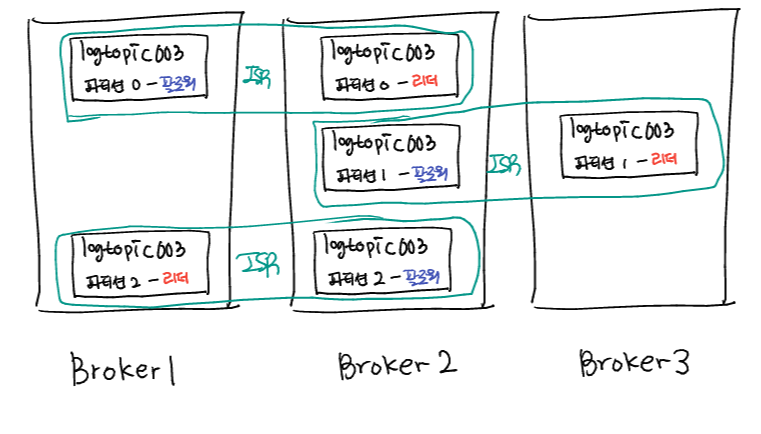 logtopic003
파티션 0 - 팔로워
ISR
logtopic003
파티션 0 - 리더
logtopic003
파티션 1 - 팔로워
ISR
logtopic003
파티션 1 - 리더
logtopic003
파티션 2 - 리더
ISR
logtopic003
파티션 2 - 팔로워
Broker 1
Broker 2
Broker 3